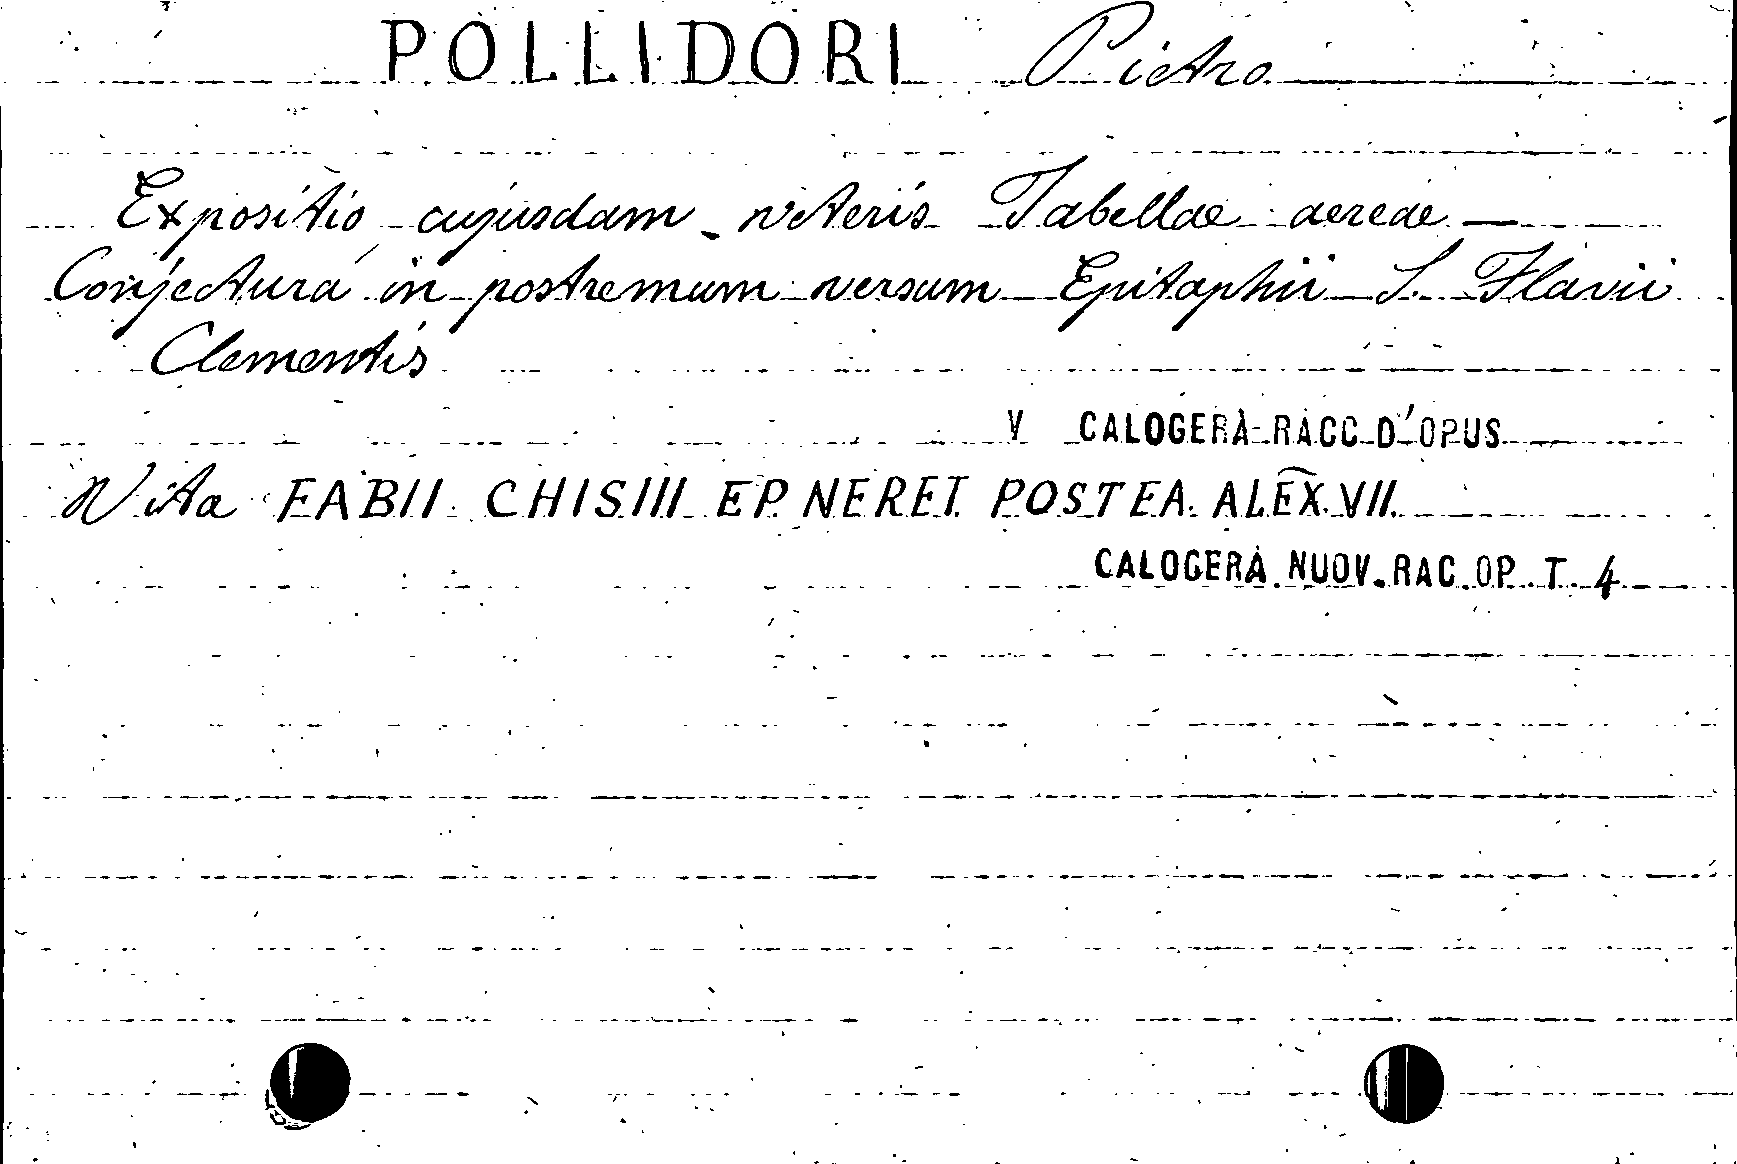 POLLIDORI Pietro
Expositio cujusdam veteris Tabellae aereae —
Conjectura in postremum versum Epitaphii S. Flavii
Clementis
V CALOGERÀ RACC D'OPUS
Vita FABII CHISIII EP NERET POSTEA ALEX. VII.
CALOGERÀ NUOV. RAC. OP. T. 4